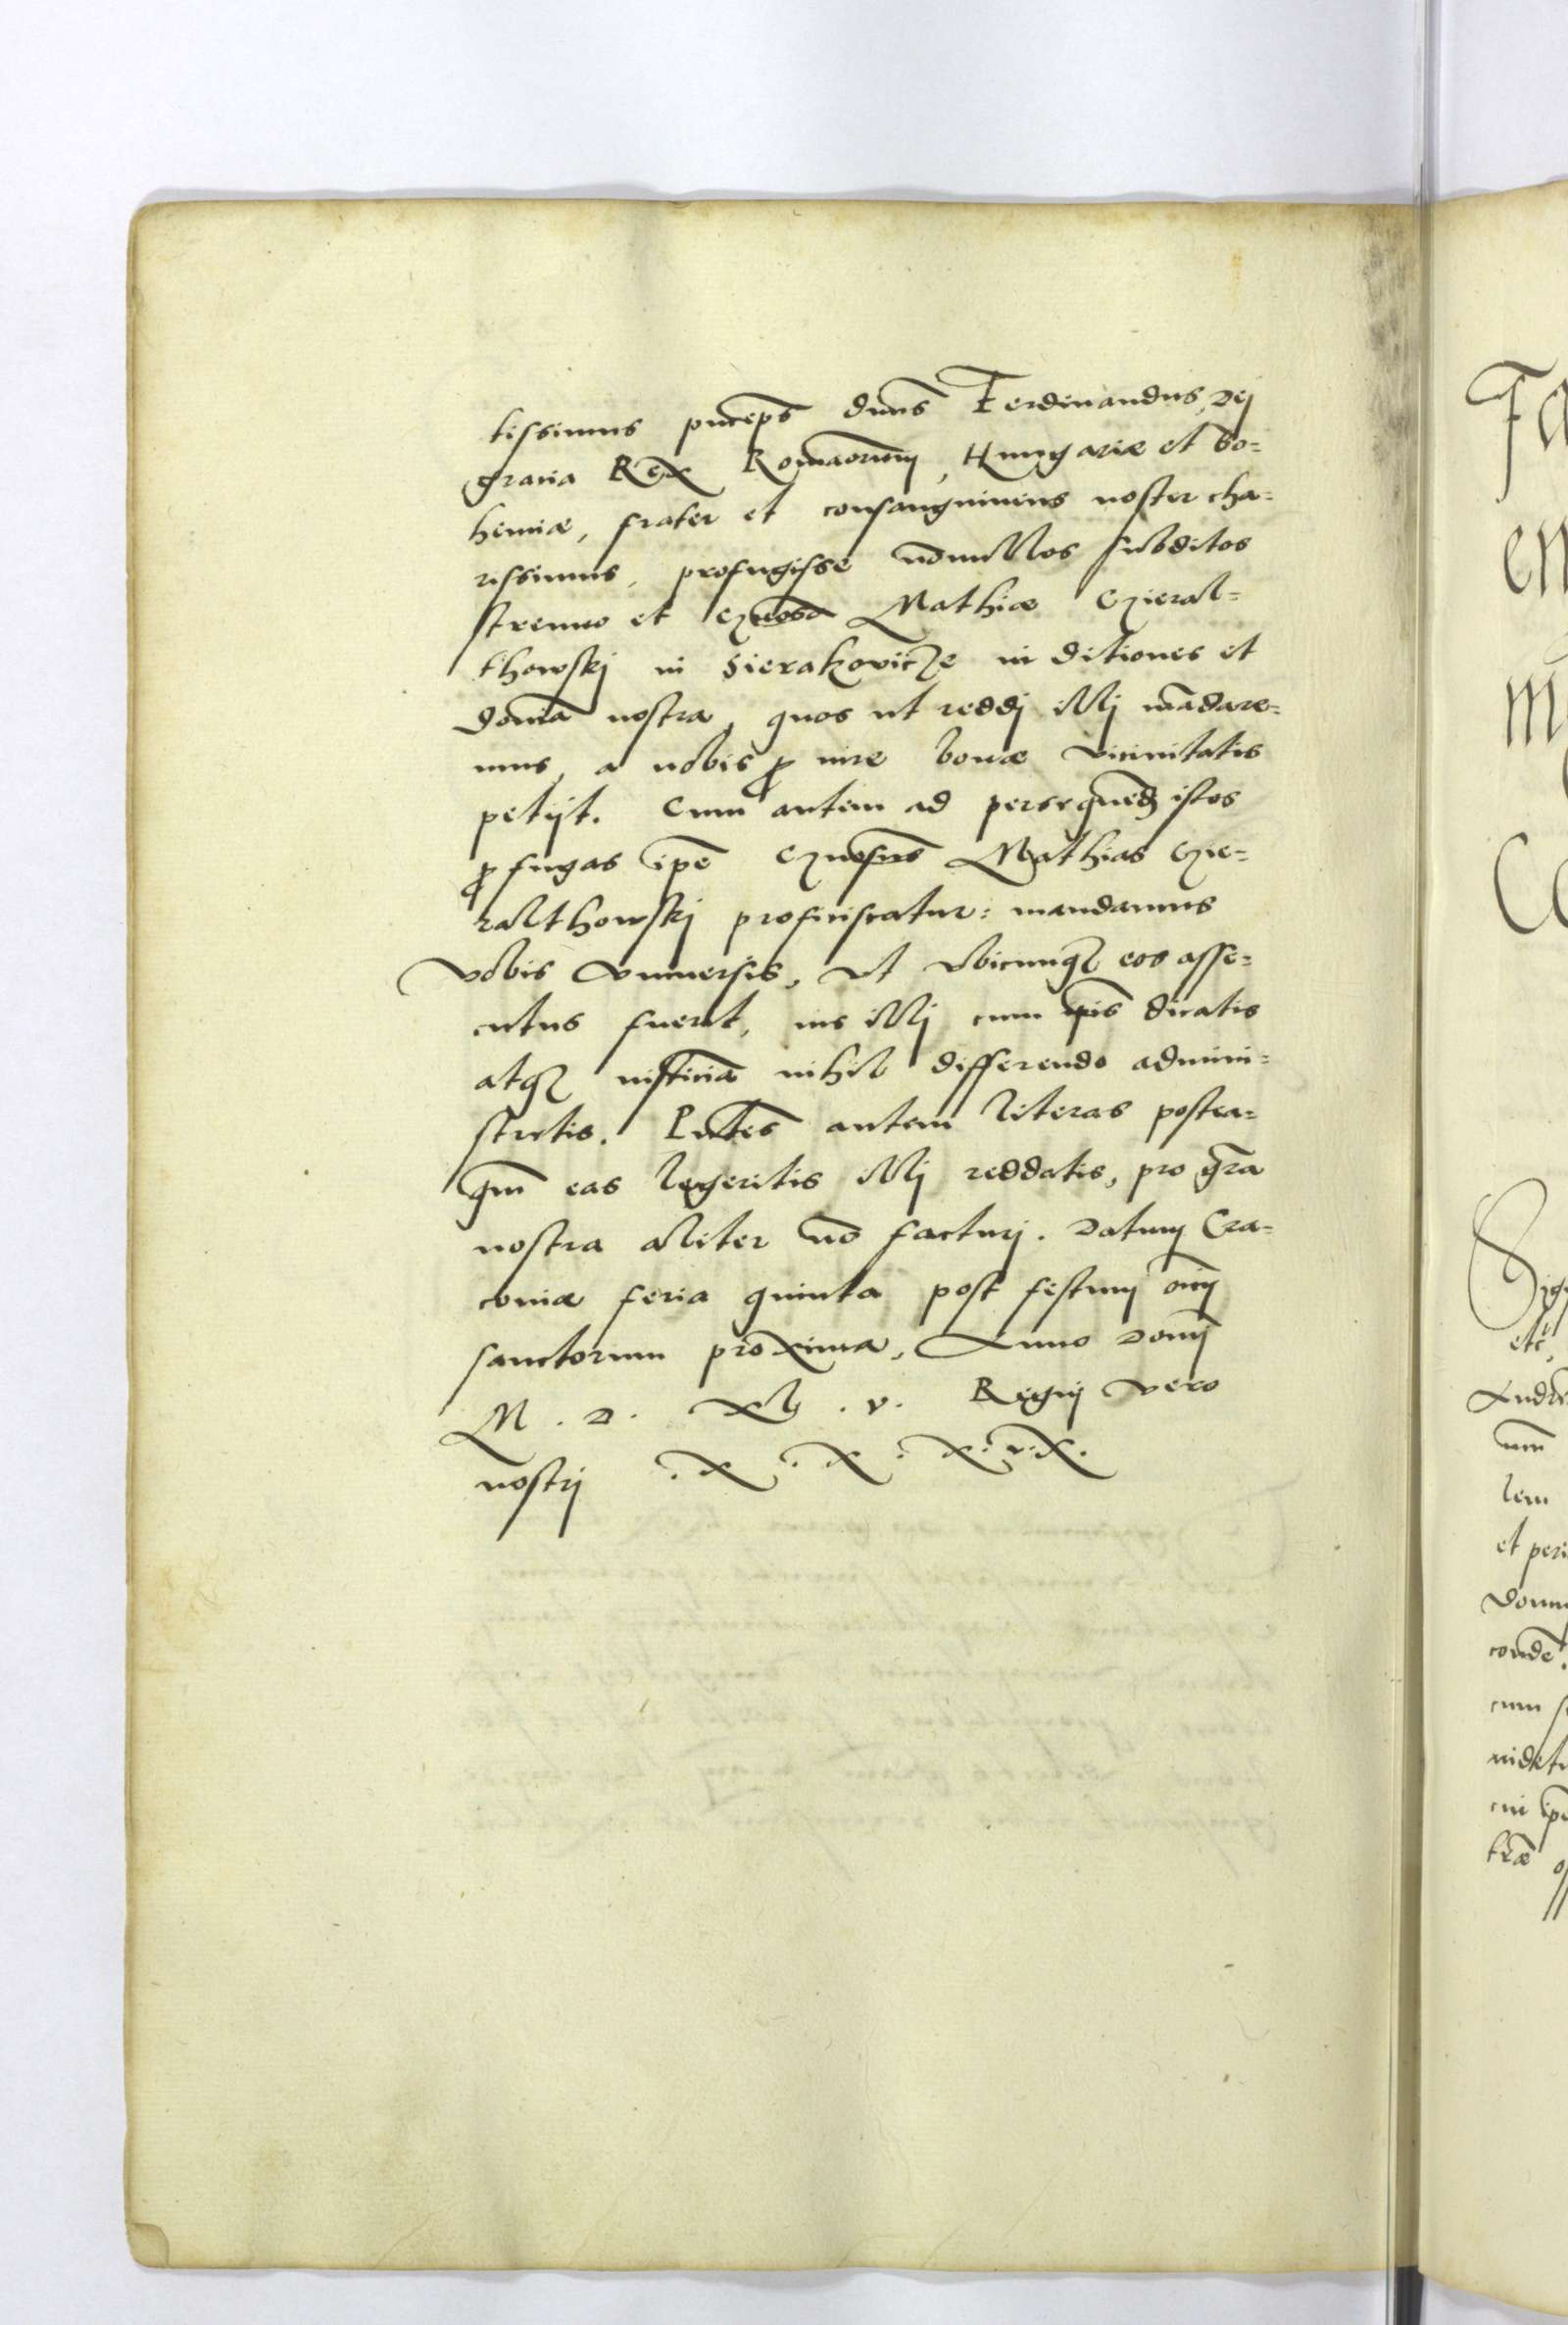 tissimus pnceps dnns Ferdinandus, Dej
gratia Rex Romaorum, Hungariæ et Bo=
hemiæ, frater et consanguineus noster cha=
rissimus, profugisse nōnullos subditos
strenuo et Mathiæ Czieral=
thowskj in Sierakovicze in ditiones et
domīa nostra, quos ut reddj illj mādare=
mus, a nobis ꝓ iure bonæ vicinitatis
petijt. Cum autem ad persequend istos
ꝓfugas ipē Mathias Czie=
ralthowskj proficiscatur: mandamus
vobis vniuersis, vt vbicunqꝫ eos asse=
cutus fuerit, ius illj cum ipīs dicatis
atqꝫ iusticiā nihil differendo admini=
stretis. Pntes autem literas postea=
qm̄ eas legeritis illj reddatis, pro grā
nostra aliter nō facturj. Datum Cra=
coviæ feria quinta post festum oīm
sanctorum proxima, Anno Domj
M . D . XL . v . Regnj vero
nostrj . X . X . X . v . X .
Fa
en
m
Co
Sigi
etc
Andre
um
lem
et peri
Domi
conde
cum s
uidet
cui ipē
træ